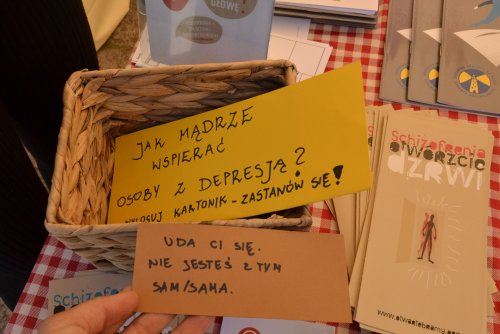 GŁOWĘ!
JAK MĄDRZE
WSPIERAĆ
OSOBY Z DEPRESJĄ?
WYLOSUJ KARTONIK - ZASTANÓW SIĘ!
UDA CI SIĘ.
NIE JESTEŚ Z TYM
SAM/SAMA.
Schizofrenia
otwórzcie
drzwi
www.otwartebramy.com
schizofrenia